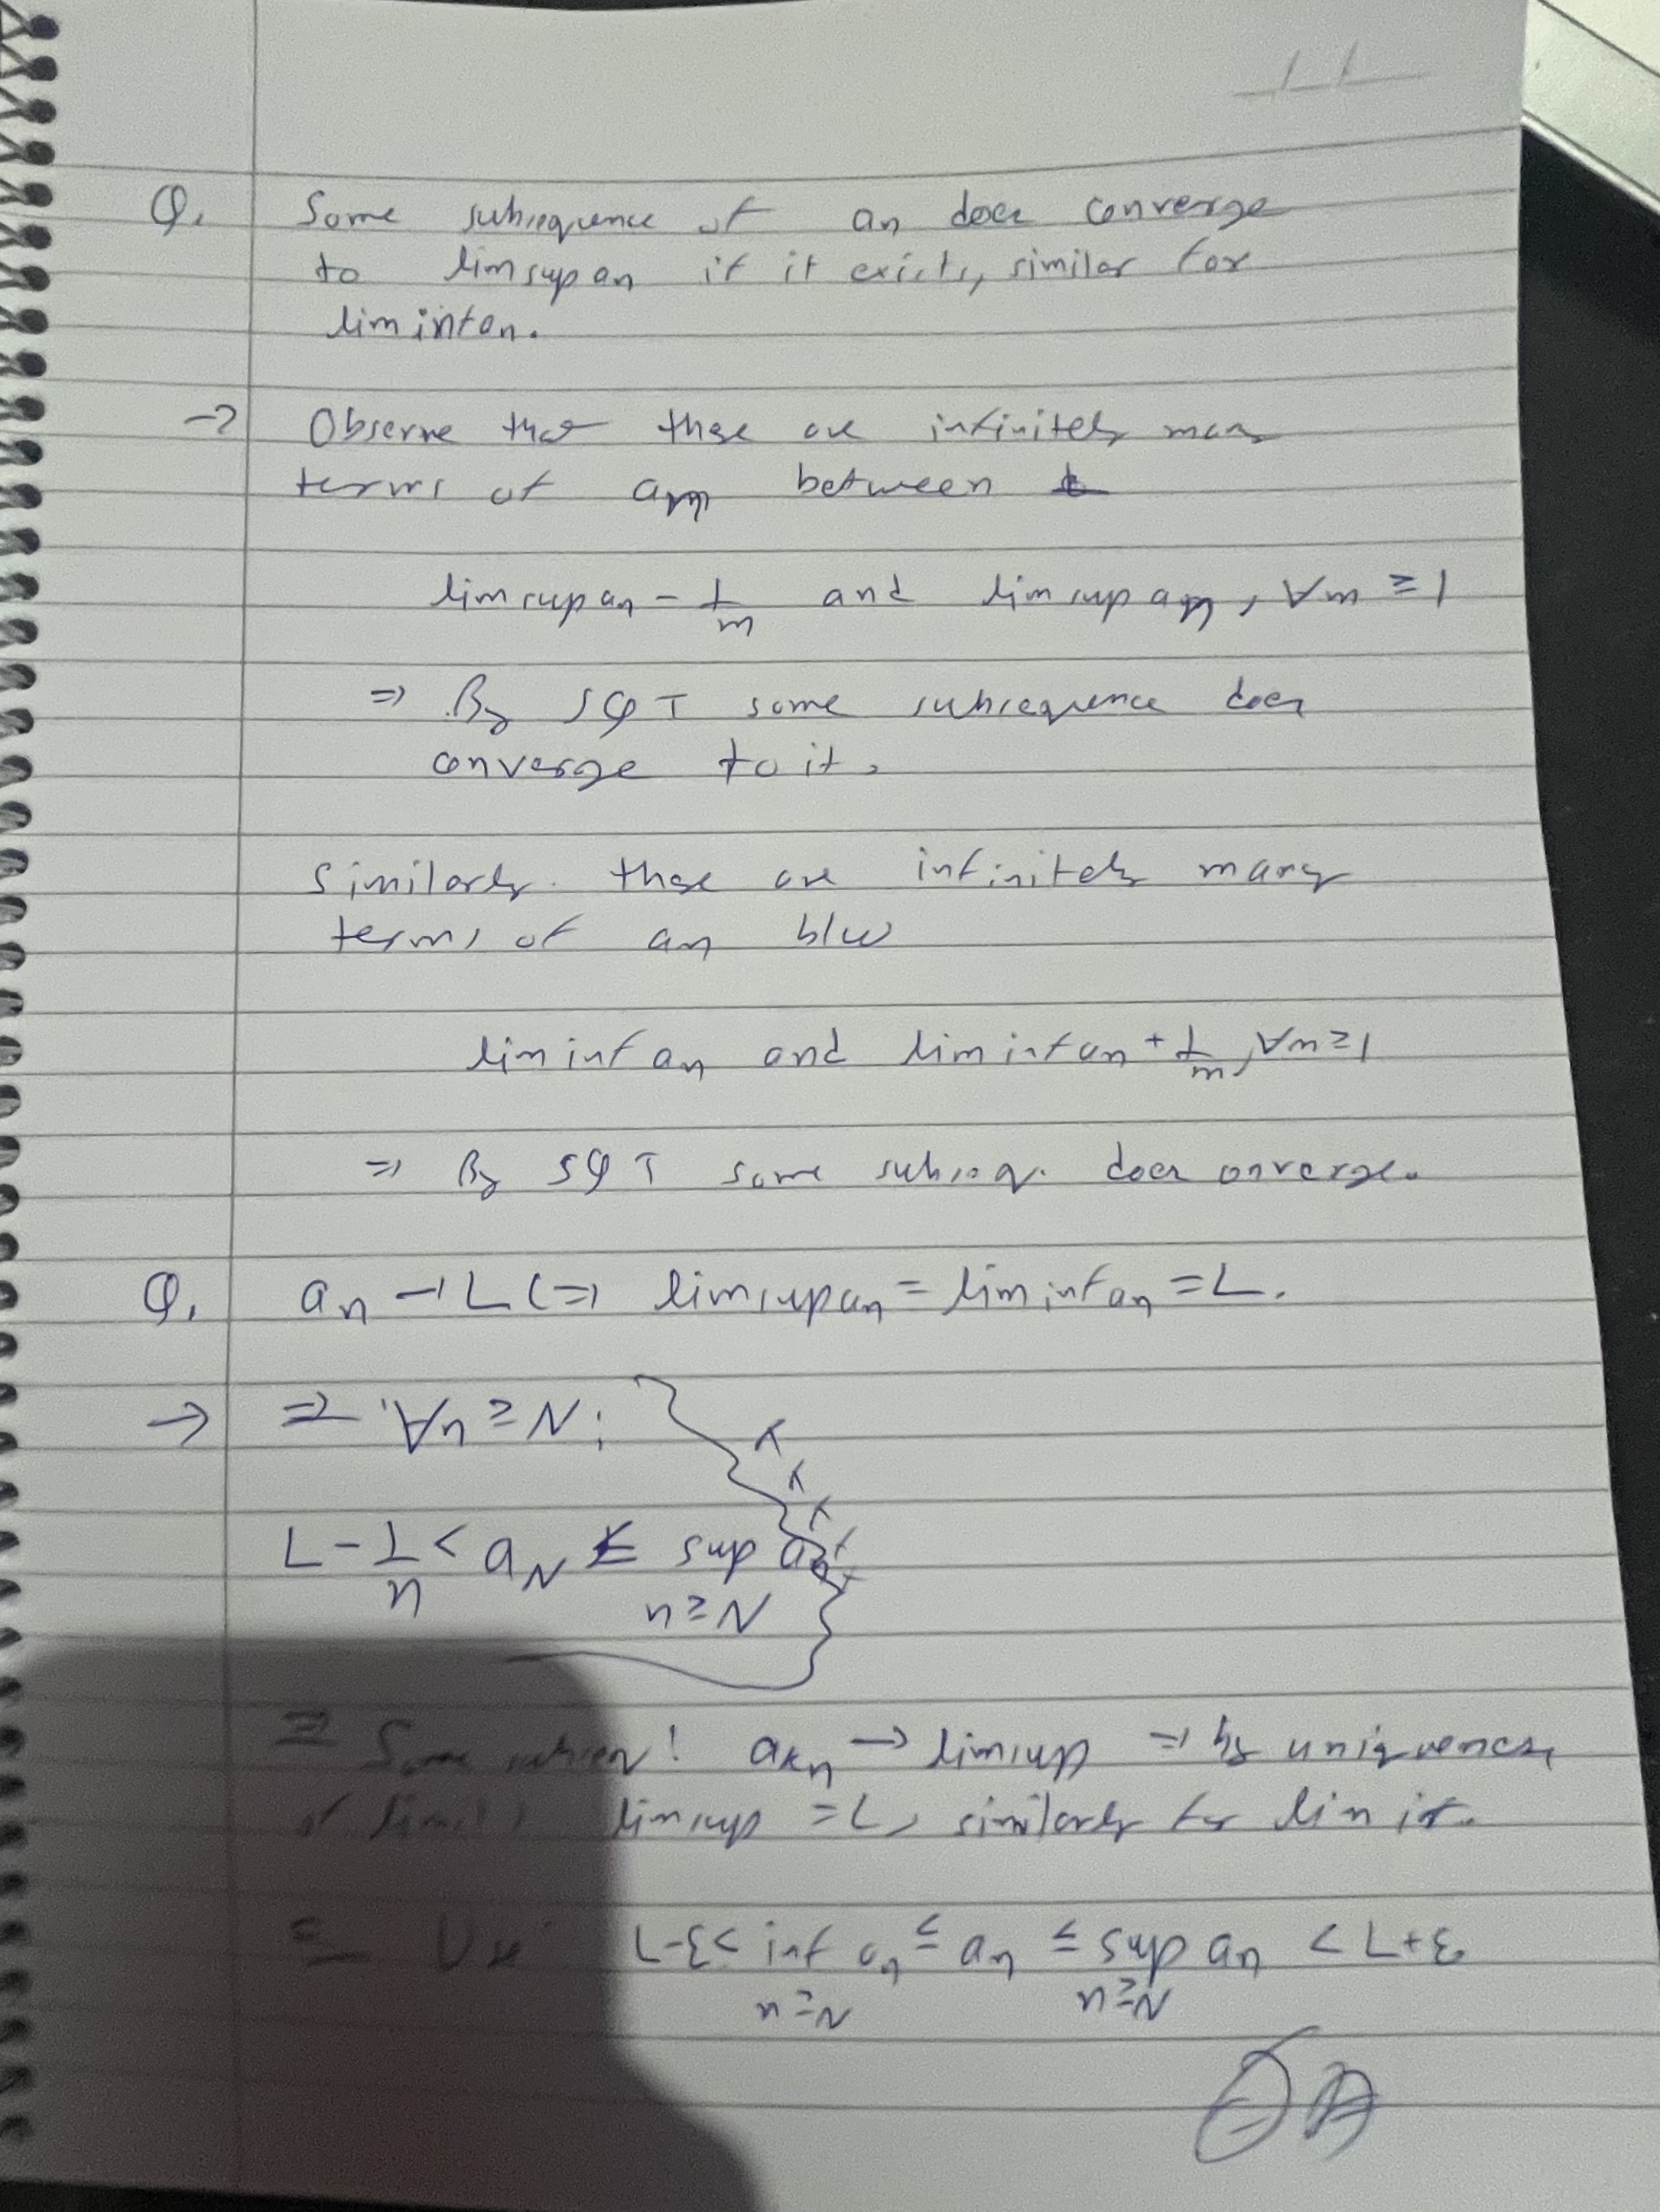 Q. Some subsequence of an does converge
to limsup an if it exists, similar for
liminf an.
→ Observe that there are infinitely many
terms of am between
limsup an - 1/m and limsup an, ∀m ≥ 1
⇒ By SQT some subsequence does
converge to it.
Similarly there are infinitely many
terms of an b/w
liminf an and liminf an + 1/m, ∀m ≥ 1
⇒ By SQT some subseq. does converge.
Q. an → L ⇔ limsup an = liminf an = L.
→ ⇒ ∀n ≥ N:
L - 1/n < aN ≤ sup an
n ≥ N
⇒ Some subseq! akn → limsup ⇒ by uniqueness
of limits limsup = L, similarly for lim inf.
Use L-ε < inf an ≤ an ≤ sup an < L+ε
n ≥ N n ≥ N